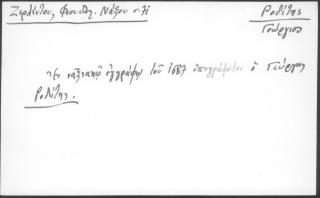 Ζερλέντου, Φεουδαλ. Νάξου σ. 71
Ροδίτης
Γεώργιος
Ἐν ναξιακῷ ἐγγράφῳ τοῦ 1687 ὑπογράφεται ὁ Γεώργης
Ροδίτης.